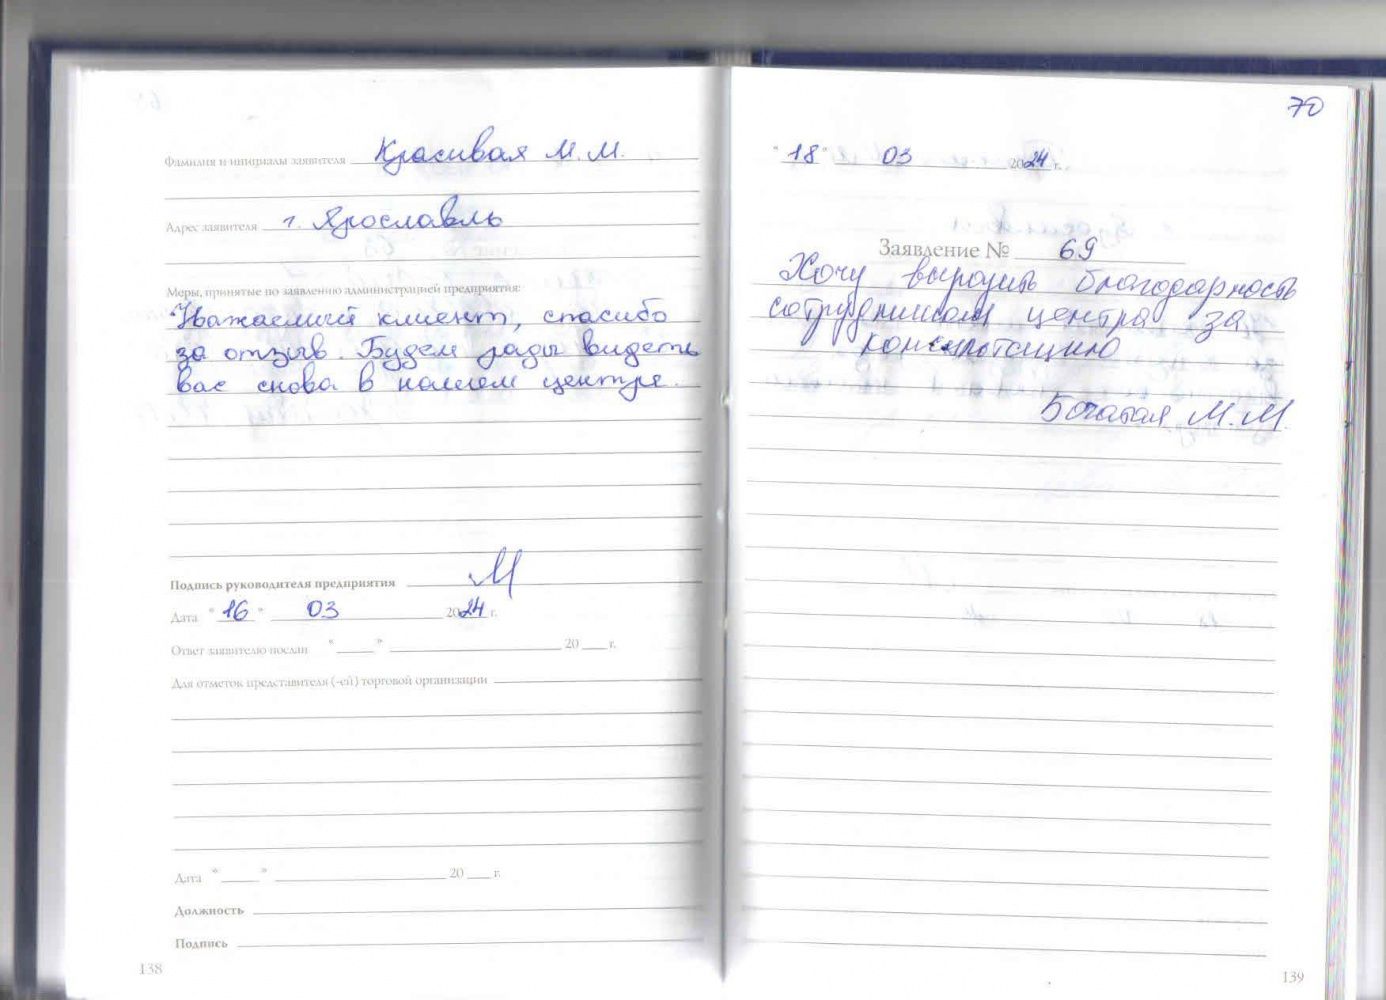 Фамилия и инициалы заявителя Красивая М.М.
Адрес заявителя г. Ярославль
Меры, принятые по заявлению администрацией предприятия:
Уважаемый клиент, спасибо
за отзыв. Будем рады видеть
вас снова в нашем центре.
Подпись руководителя предприятия М
Дата "16" 03 2024 г.
Ответ заявителю послан "____" ____ 20 ___ г.
Для отметок представителя (-ей) торговой организации
Дата "____" ____ 20 ___ г.
Должность
Подпись
138
70
"18" 03 2024 г.
Заявление № 69
Хочу выразить благодарность
сотрудникам центра за
консультацию
Богатая М.М.
139